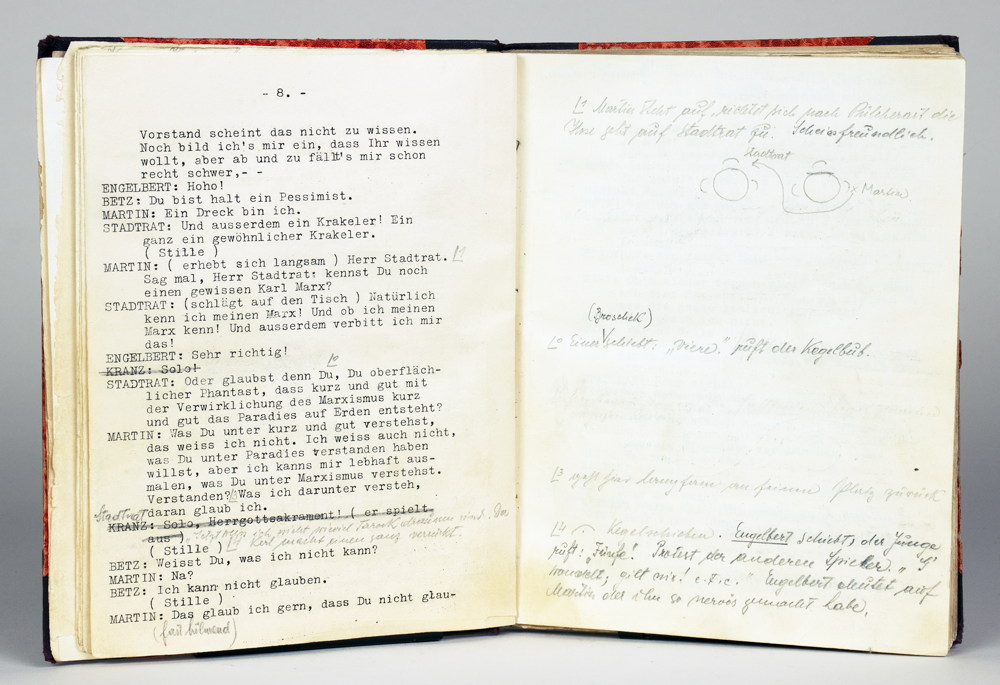 - 8. -
Vorstand scheint das nicht zu wissen.
Noch bild ich's mir ein, dass Ihr wissen
wollt, aber ab und zu fällt's mir schon
recht schwer,- -
ENGELBERT: Hoho!
BETZ: Du bist halt ein Pessimist.
MARTIN: Ein Dreck bin ich.
STADTRAT: Und ausserdem ein Krakeler! Ein
ganz ein gewöhnlicher Krakeler.
( Stille )
MARTIN: ( erhebt sich langsam ) Herr Stadtrat. 
Sag mal, Herr Stadtrat: kennst Du noch
einen gewissen Karl Marx?
STADTRAT: (schlägt auf den Tisch ) Natürlich
kenn ich meinen Marx! Und ob ich meinen
Marx kenn! Und ausserdem verbitt ich mir
das!
ENGELBERT: Sehr richtig!
KRANZ: Solo!
STADTRAT: Oder glaubst denn Du, Du oberfläch-
licher Phantast, dass kurz und gut mit
der Verwirklichung des Marxismus kurz
und gut das Paradies auf Erden entsteht?
MARTIN: Was Du unter kurz und gut verstehst,
das weiss ich nicht. Ich weiss auch nicht,
was Du unter Paradies verstanden haben
willst, aber ich kanns mir lebhaft aus-
malen, was Du unter Marxismus verstehst.
Verstanden? Was ich darunter versteh,
daran glaub ich.
Stadtrat
KRANZ: Solo, Herrgottsakrament! ( er spielt
aus )
( Stille )
BETZ: Weisst Du, was ich nicht kann?
MARTIN: Na?
BETZ: Ich kann nicht glauben.
( Stille )
MARTIN: Das glaub ich gern, dass Du nicht glau-
Martin steht auf, richtet sich nach Pülcherart die
Hose geht auf Stadtrat zu. Scheinfreundlich.
Stadtrat
Martin
(Broschek)
Einer schiebt: "Viere" ruft der Kegelbub.
an seinen Platz zurück
Kegelschieben. Engelbert schiebt, der Junge
ruft: "Fünfe! Protest der anderen Spieler. "
gilt nix! e.t.c." Engelbert deutet auf
Martin der ihn so nervös gemacht habe.